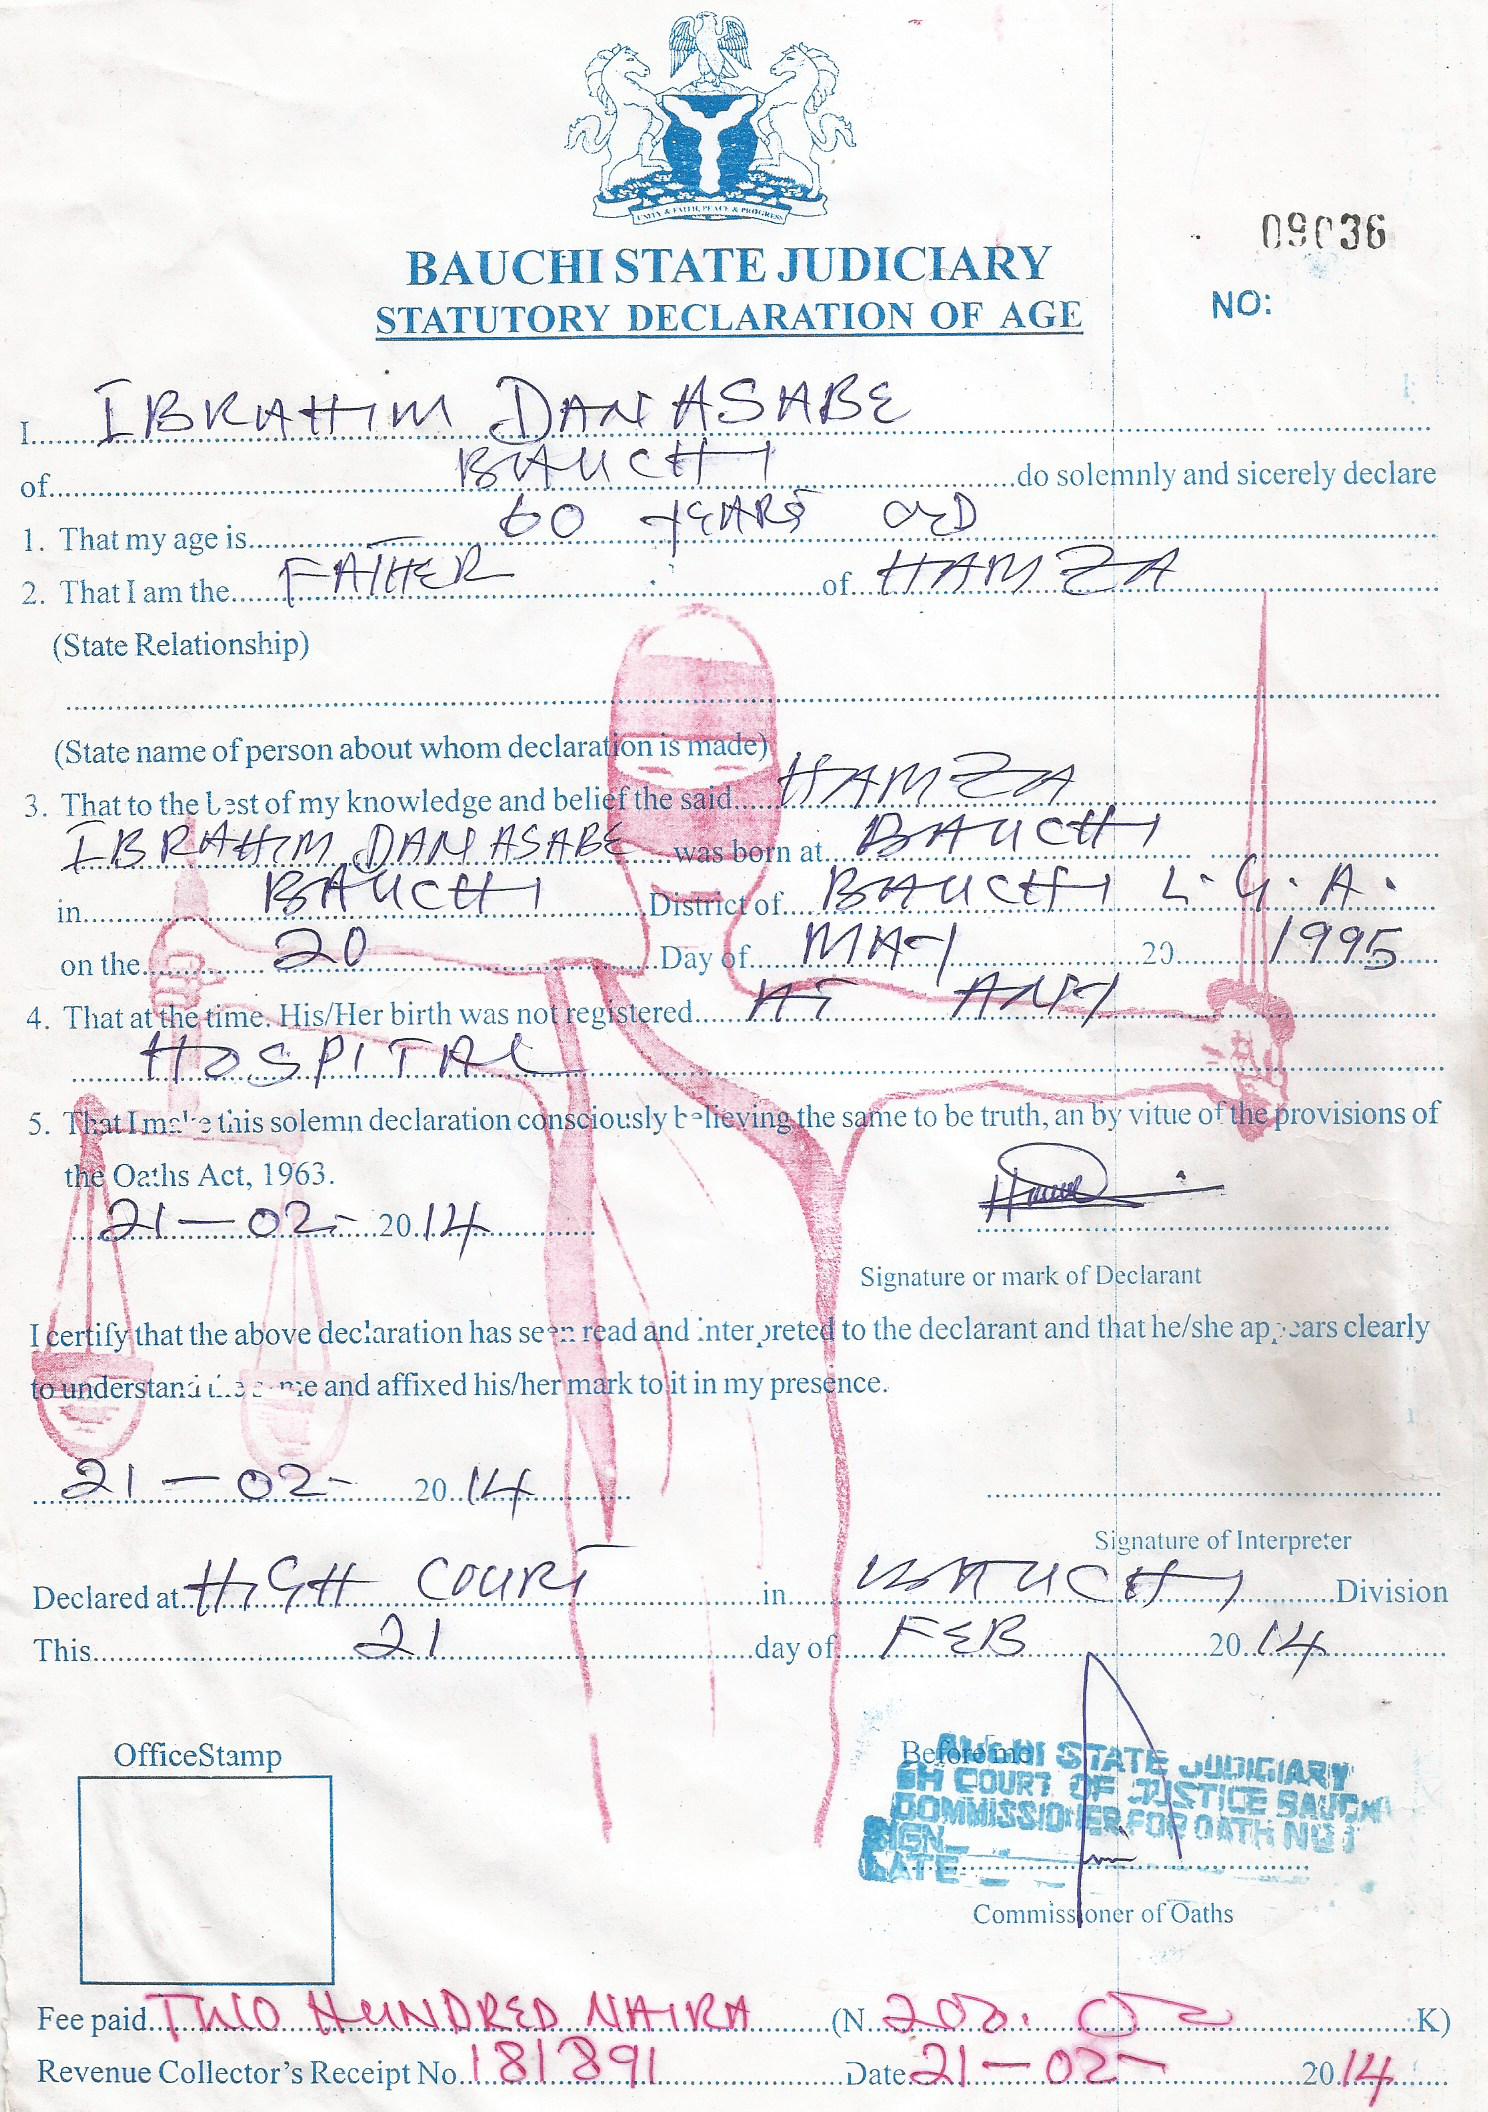 UNITY & FAITH, PEACE & PROGRESS
09036
BAUCHI STATE JUDICIARY
STATUTORY DECLARATION OF AGE
NO:
I IBRAHIM DAN ASABE
of BAUCHI do solemnly and sicerely declare
1. That my age is 60 YEARS OLD
2. That I am the FATHER of HAMZA
(State Relationship)
(State name of person about whom declaration is made)
3. That to the best of my knowledge and belief the said HAMZA
IBRAHIM DAN ASABE was born at BAUCHI
in BAUCHI District of BAUCHI L.G.A.
on the 20 Day of MAY 20 1995
4. That at the time. His/Her birth was not registered AT ANY
HOSPITAL
5. That I make this solemn declaration consciously believing the same to be truth, an by vitue of the provisions of
the Oaths Act, 1963.
21-02- 2014
Signature or mark of Declarant
I certify that the above declaration has seen read and interpreted to the declarant and that he/she appears clearly
to understand the same and affixed his/her mark to it in my presence.
21-02- 2014
Signature of Interpreter
Declared at HIGH COURT in BAUCHI Division
This 21 day of FEB 2014
OfficeStamp
Before me
BAUCHI STATE JUDICIARY
GH COURT OF JUSTICE BAUCHI
COMMISSIONER FOR OATH NO 1
SIGN
DATE
Commissioner of Oaths
Fee paid TWO HUNDRED NAIRA (N 200. 00 K)
Revenue Collector's Receipt No. 181891 Date 21-02- 2014